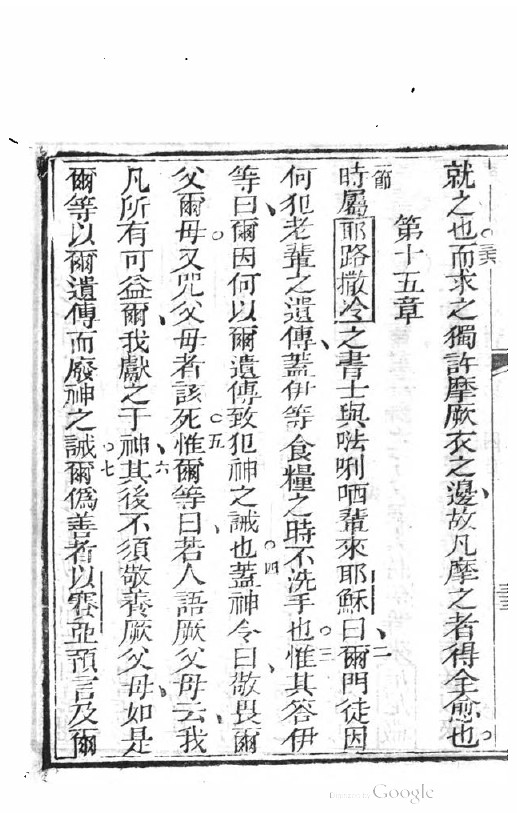 就之也。三六而求之獨許摩厥衣之邊、故凡摩之者得全愈也。
第十五章
一節時屬耶路撒冷之書士與𠵽唎哂輩來耶穌曰、二爾門徒因
何犯老輩之遺傳、蓋伊等食糧之時不洗手也。三惟其答伊
等曰、爾因何以爾遺傳致犯神之誡也。四蓋神令曰、敬畏爾
父爾母。又咒父母者該死。五惟爾等曰、若人語厥父母云、我
凡所有可益爾、我獻之于神、六其後不須敬養厥父母、如是
爾等以爾遺傳而廢神之誡。七爾偽善者以賽亞預言及爾
Digitized by Google